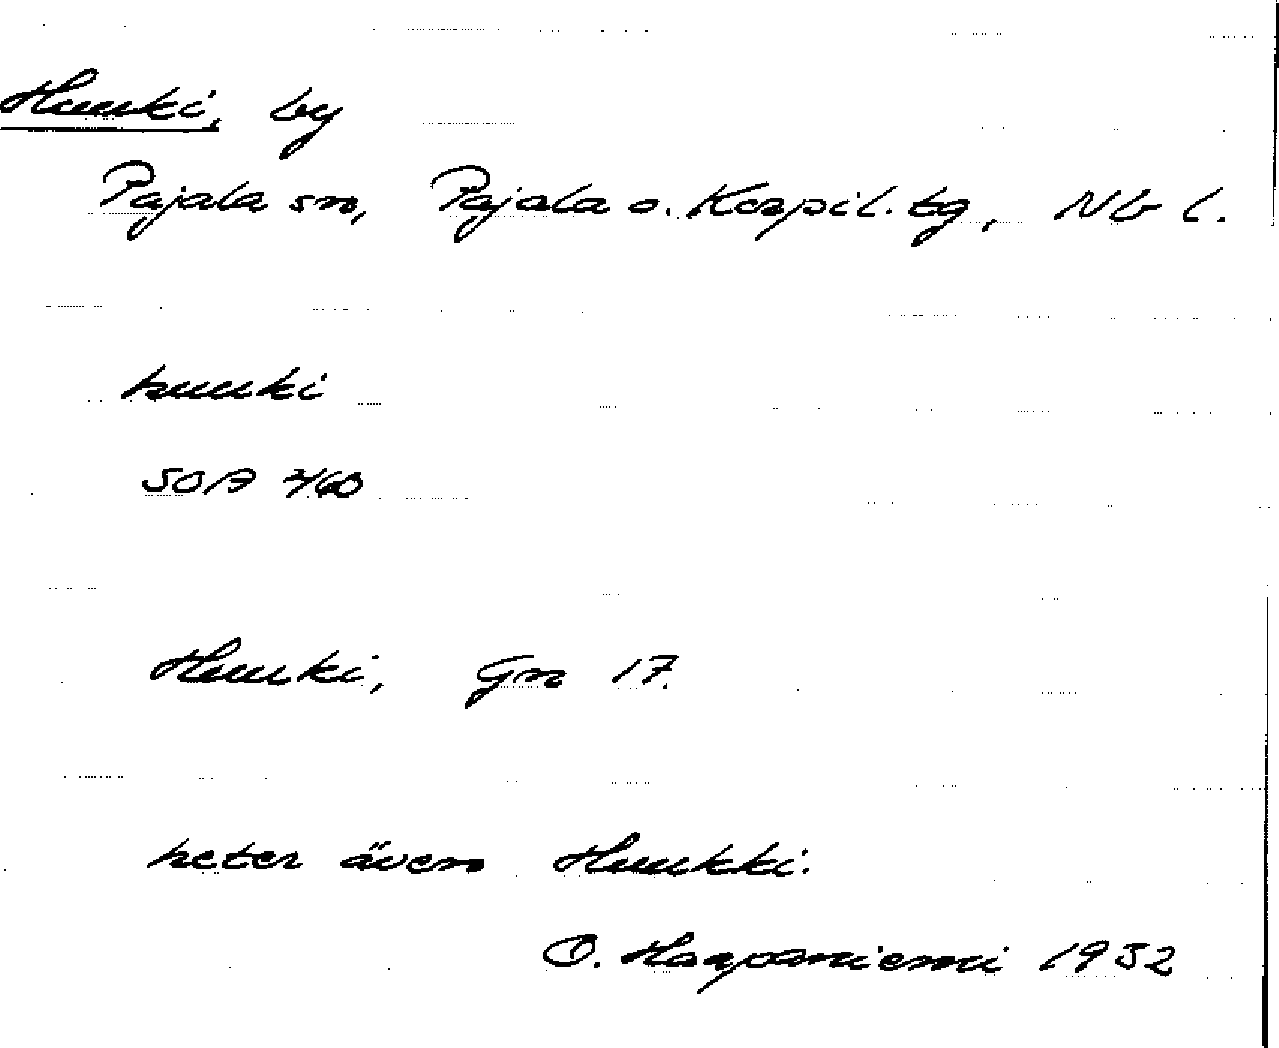 Huuki, by
Pajala sn, Pajala o. Korpil. tg, Nb l.
huuki
SOA 2/60
Huuki, Gn 17.
heter även Huukki.
O. Haapaniemi 1952